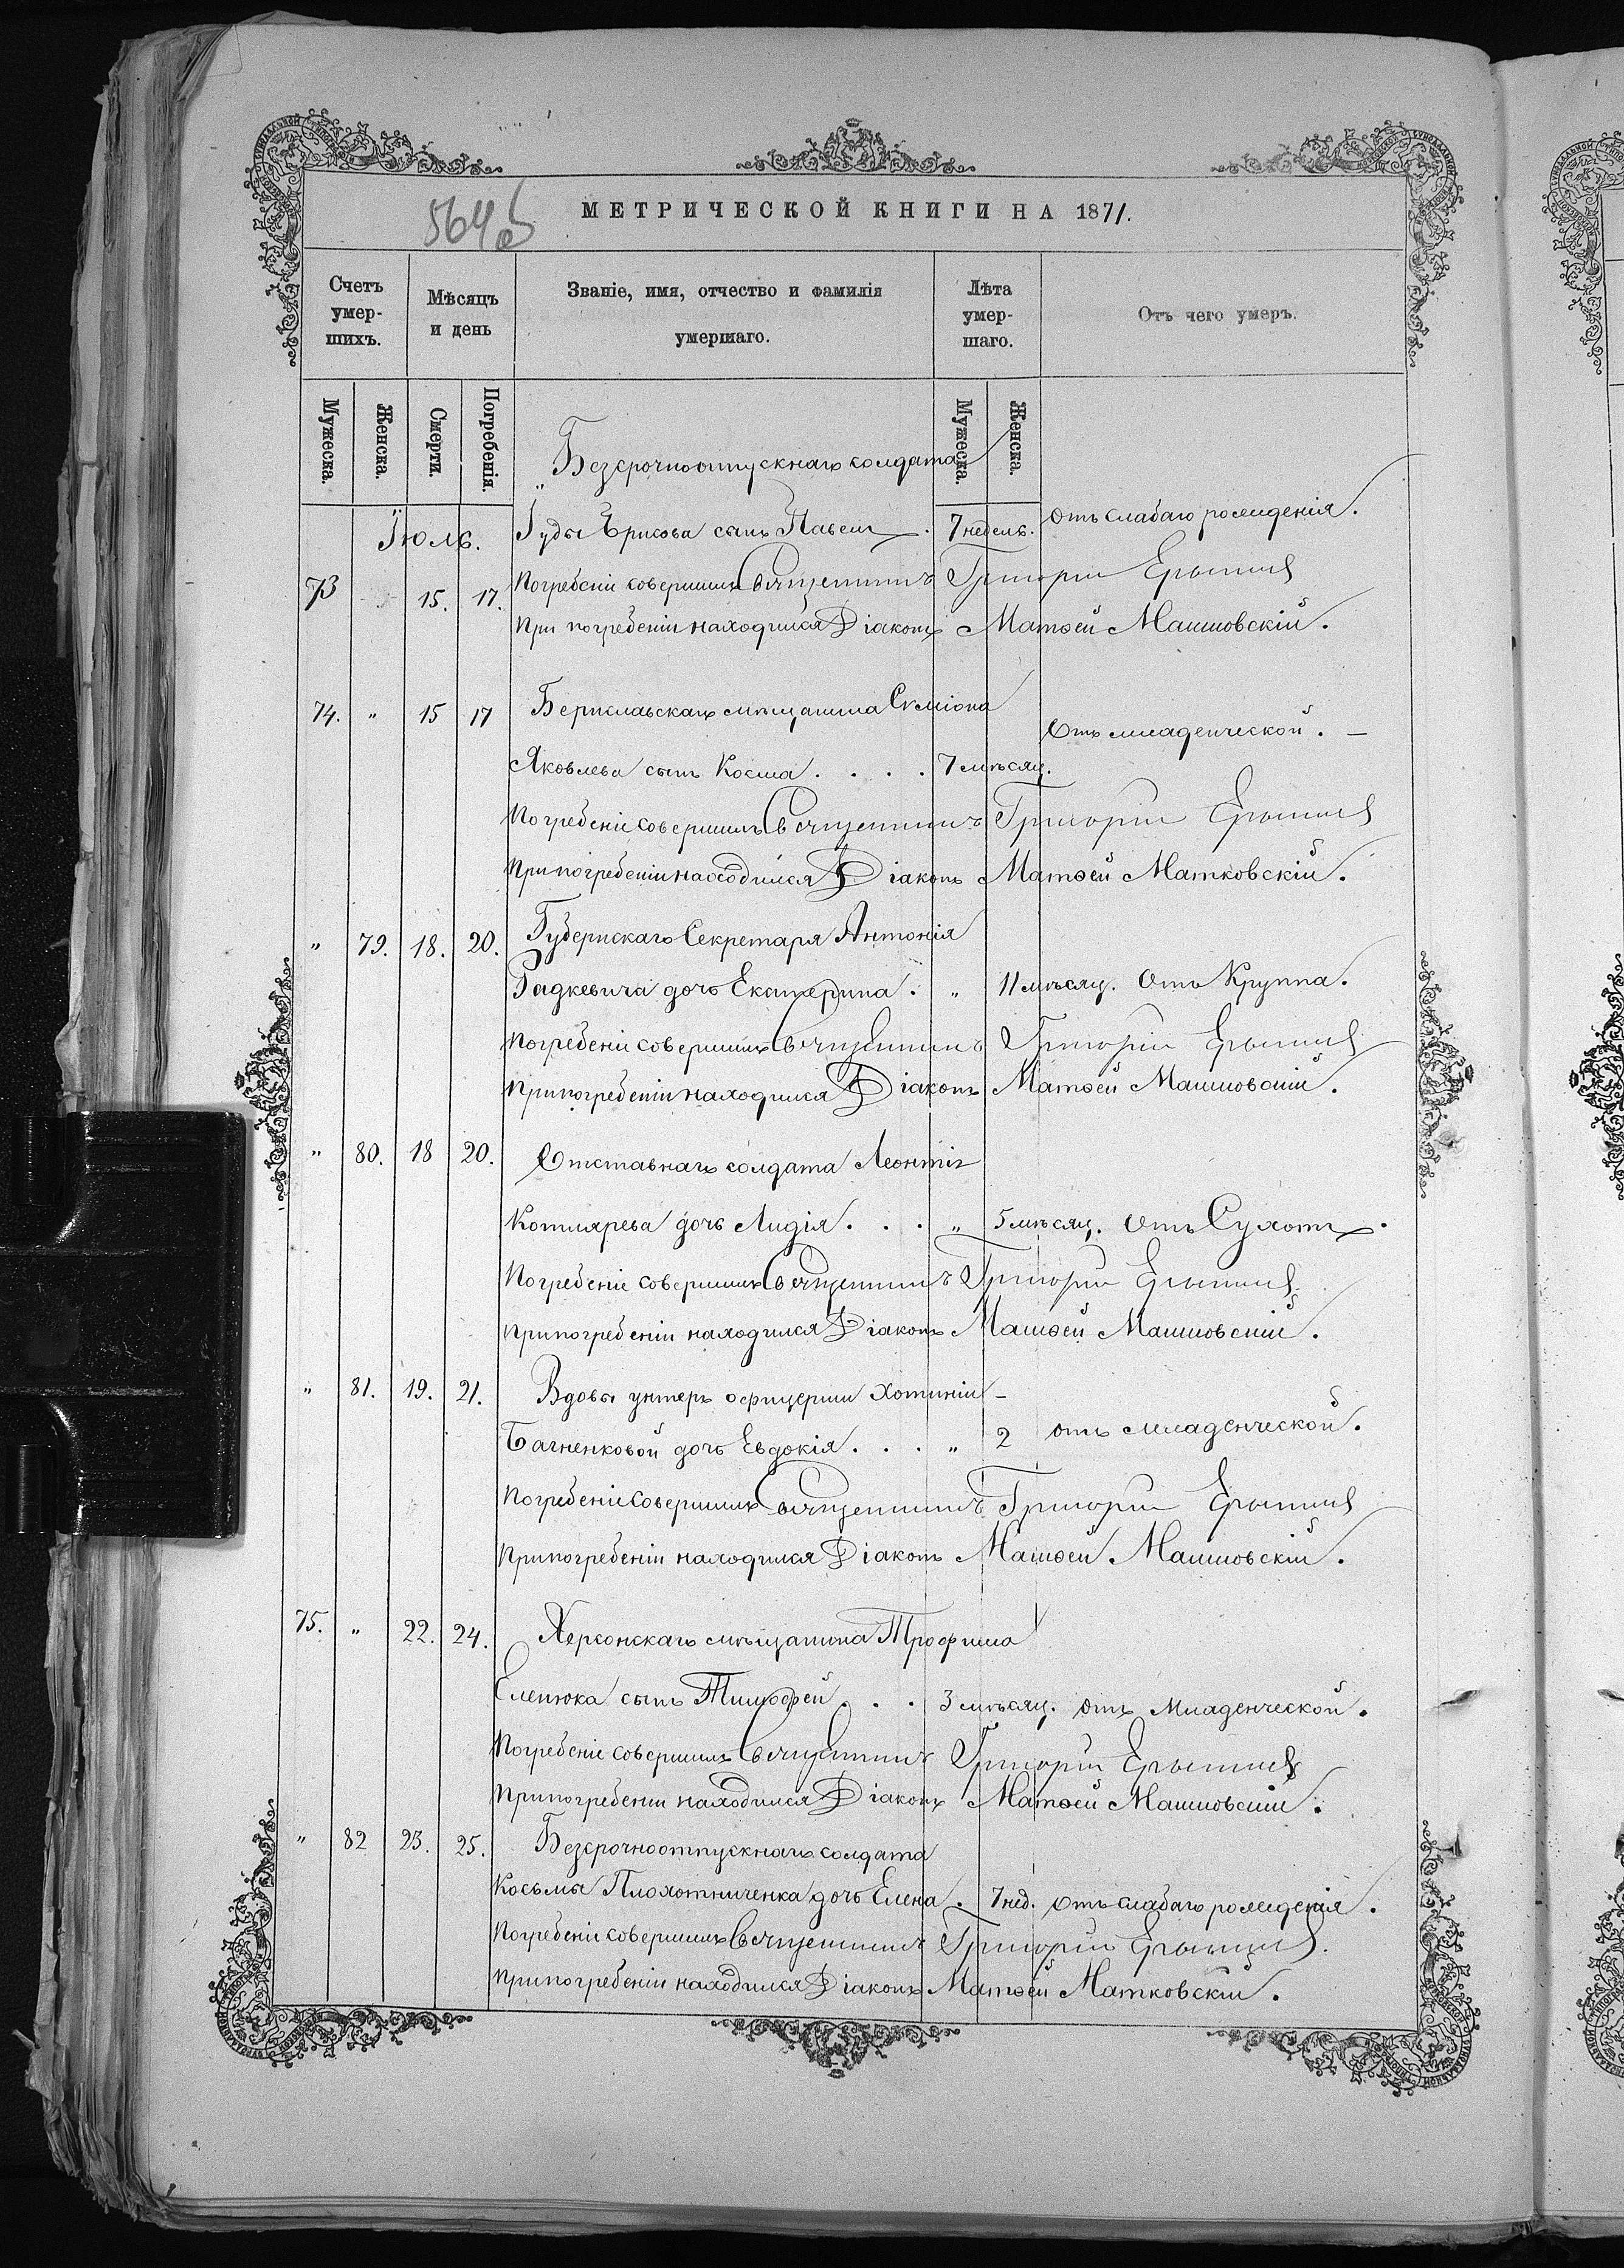 564 об
МЕТРИЧЕСКОЙ КНИГИ НА 1871.
Счетъ умер-шихъ. Мѣсяцъ и день Званіе, имя, отчество и фамилія умершаго. Лѣта умер-шаго. Отъ чего умеръ.
Мужеска. Женска. Смерти. Погребенія. Мужеска. Женска.
Безсрочноотпускнаго солдата
Іюль. сынъ Павелъ . 7 недель. Отъ слабаго рожденія.
73 15. 17. Погребеніе совершилъ Священникъ Григорій
При погребеніи находился Діаконъ Матѳей Матковскій.
74. " 15 17 Бериславскаго мѣщанина Симіона
Отъ младенческой. –
Яковлева сынъ Косма . . . . 7 мѣсяц.
Погребеніе совершилъ Священникъ Григорій
При погребеніи находился Діаконъ Матѳей Матковскій.
" 79. 18. 20. Губернскаго Секретаря Антонія
Радкевича дочь Екатерина . " 11 мѣсяц. Отъ Круппа.
Погребеніе совершилъ Священникъ Григорій
При погребеніи находился Діаконъ Матѳей Матковскій.
" 80. 18 20. Отставнаго солдата Леонтія
Котлярева дочь Лидія . . . " 5 мѣсяц. Отъ Сухотъ.
Погребеніе совершилъ Священникъ Григорій
При погребеніи находился Діаконъ Матѳей Матковскій.
" 81. 19. 21. Вдовы унтеръ офицерши Хотиніи –
Багненковой дочь Евдокія . . . " 2 отъ младенческой.
Погребеніе совершилъ Священникъ Григорій
При погребеніи находился Діаконъ Матѳей Матковскій.
75. " 22. 24. Херсонскаго мѣщанина Трофима
сынъ Тимофей . . . 3 мѣсяц. отъ Младенческой.
Погребеніе совершилъ Священникъ Григорій
При погребеніи находился Діаконъ Матѳей Матковскій.
" 82 23. 25. Безсрочноотпускнаго солдата
Косьмы Плохотниченка дочь Елена . 7 нед. отъ слабаго рожденія.
Погребеніе совершилъ Священникъ Григорій
При погребеніи находился Діаконъ Матѳей Матковскій.